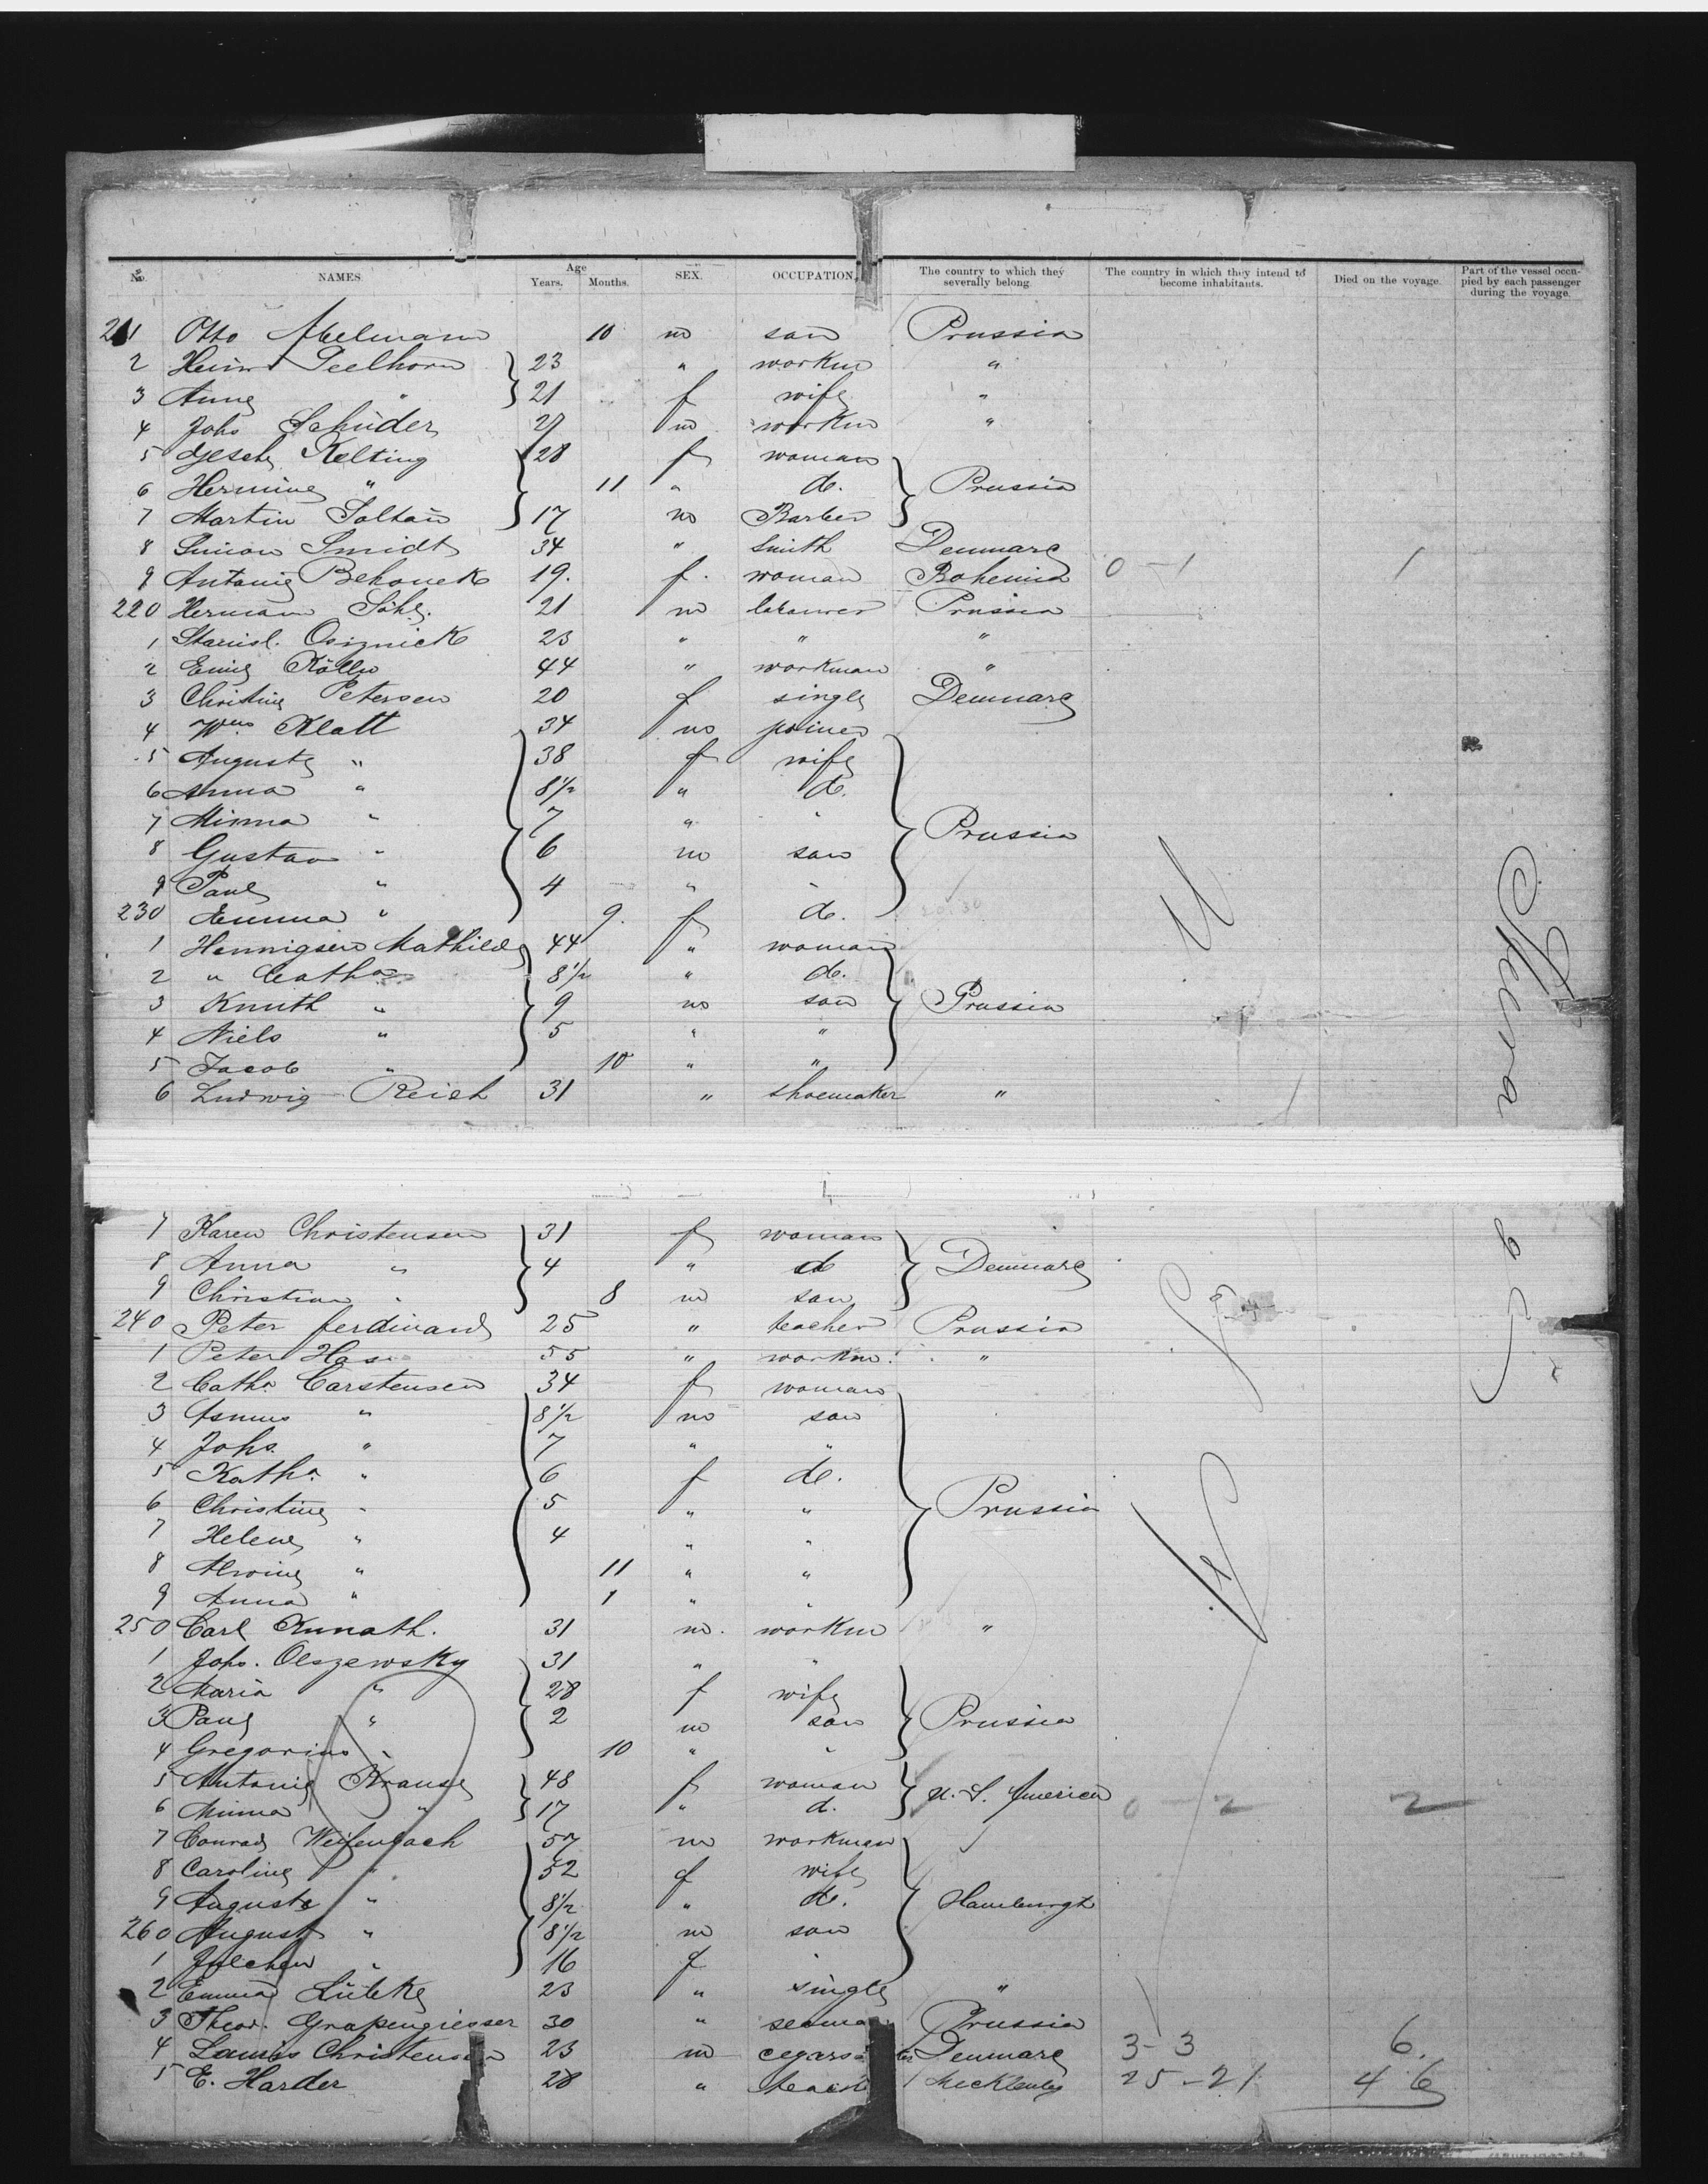 No. NAMES. Age Years. Months. SEX. OCCUPATION. The country to which they severally belong. The country in which they intend to become inhabitants. Died on the voyage. Part of the vessel occupied by each passenger during the voyage.
211 Otto Abelmann 10 m son Prussia
2 Heinr. Seelhorn 23 " workm "
3 Anne " 21 f wife "
4 Johs Schüder 27 m workm "
5 Gesche Kelting 28 f woman
6 Hermine " 11 " do. Prussia
7 Martin Soltau 17 m Barber
8 Simon Smidt 34 " Smith Denmark
9 Antonie Behounek 19. f. woman Bohemia 0-1 1
220 Hermann 21 m labourer Prussia
1 Stanisl. 23 " " "
2 Emil Kölln 44 " workman "
3 Christine Petersen 20 f single Denmark
4 Wm Klatt 34 m joiner
5 Auguste " 38 f wife
6 Anna " 8½ " do.
7 Minna " 7 " " Prussia
8 Gustav " 6 m son
9 Paul " 4 " "
230 Emma " 9. f do.
1 Hennigsen Mathilde 44 " woman
2 " Catha 8½ " do.
3 Knuth " 9 m son Prussia
4 Niels " 5 " "
5 Jacob " 10 " "
6 Ludwig Reich 31 " shoemaker "
7 Karen Christensen 31 f woman
8 Anna " 4 " do Denmark
9 Christian " 8 m son
240 Peter ferdinand 25 " teacher Prussia
1 Peter Hase 55 " workm. "
2 Catha Carstensen 34 f woman
3 Asmus " 8½ m son
4 Johs. " 7 " "
5 Katha. " 6 f do.
6 Christine " 5 " " Prussia
7 Helene " 4 " "
8 Alwine " 11 " "
9 Anna " 1 " "
250 Carl Kunath. 31 m. workm "
1 Johs. Olszewsky 31 " "
2 Maria " 28 f wife
3 Paul " 2 m son Prussia
4 Gregorius " 10 " "
5 Antonie Krause 48 f woman U. S. America
6 Minna " 17 " d. 0-2 2
7 Conrad Weifenbach 57 m workman
8 Caroline " 52 f wife
9 Auguste " 8½ " do. Hamburgh
260 August " 8½ m son
1 Julchen " 16 f "
2 Emma Lübke 23 " single "
3 Theor. Grapengiesser 30 " seaman Prussia
4 Lauris Christensen 23 m Denmark 3-3 6.
5 E. Harder 28 " Mecklenbg 25-21 46